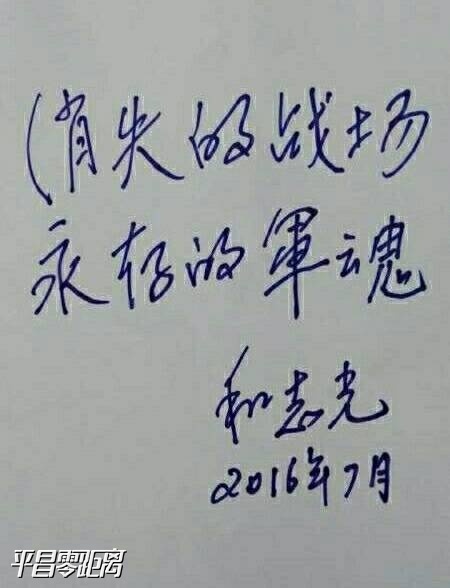 消失的战场
永存的軍魂
和志光
2016年7月
平昌零距离